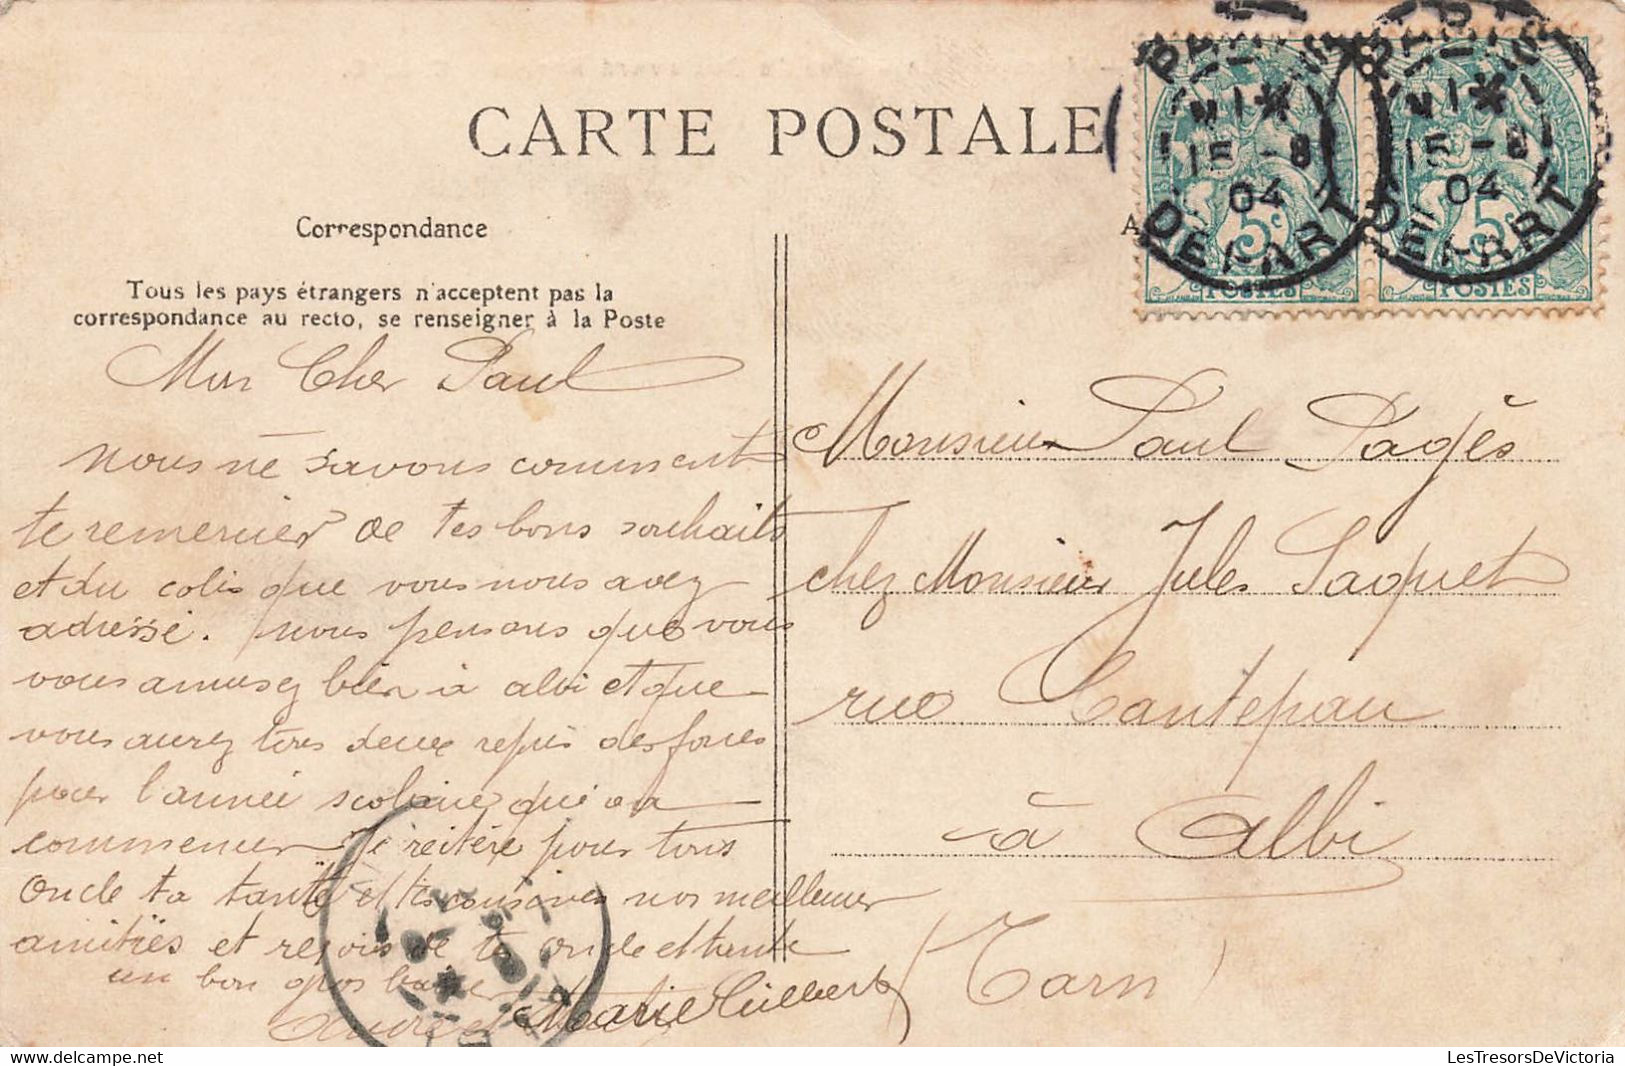 CARTE POSTALE
Correspondance
Tous les pays étrangers n'acceptent pas la
correspondance au recto, se renseigner à la Poste
Mon Cher Paul
nous ne savons comment
te remercier de tes bons souhaits
et du colis que vous nous avez
adressé. nous pensons que vous
vous amusez bien à albi et que
vous aurez tous deux repris des forces
pour l'année scolaire qui va
commencer. Je réitère pour ton
Oncle ta tante et tes cousines nos meilleures
amitiés et reçois de ta Oncle et tante
un bon gros baiser
Marie
PARIS
15 - 8
04
DEPART
5c
POSTES
PARIS
15 - 8
04
DEPART
5c
POSTES
Monsieur Paul Pagès
chez Monsieur Jules Saquet
rue Cantepau
à Albi
(Tarn)
LesTresorsDeVictoria